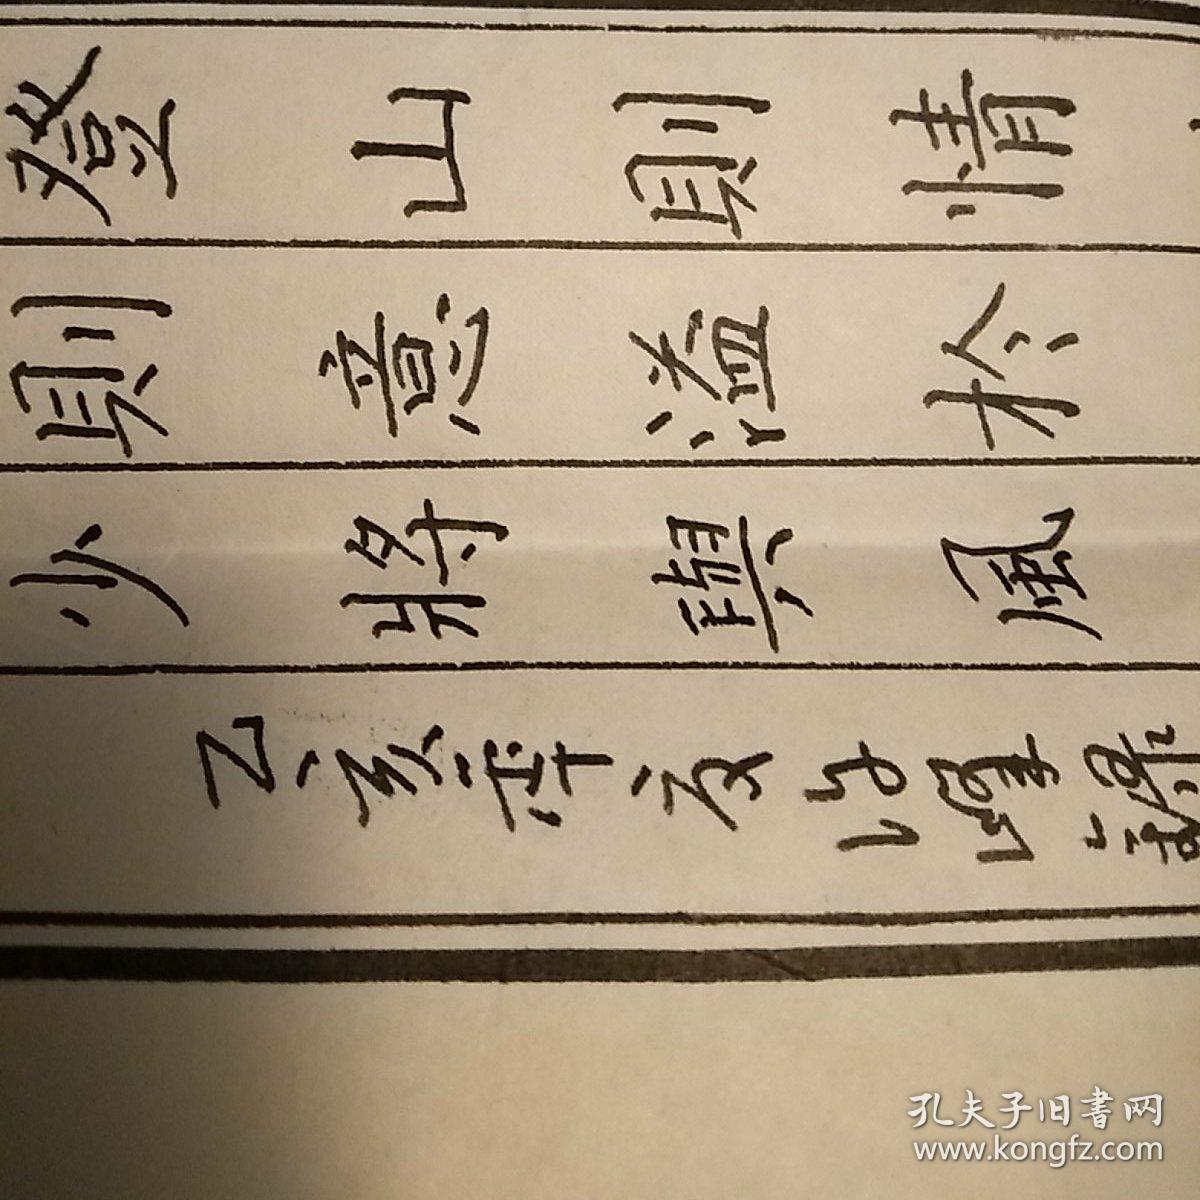 登山則情
則意溢於
少將與風
乙亥年夏
孔夫子旧書网
www.kongfz.com